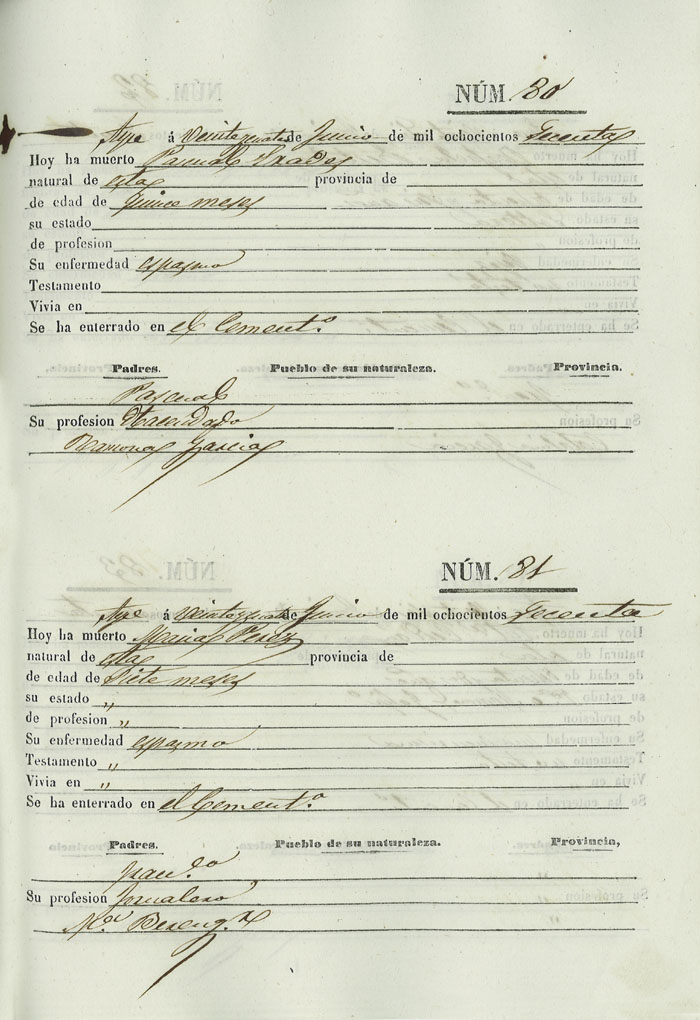 NÚM. 80
Aspe á Veintecuatro de Junio de mil ochocientos Secenta
Hoy ha muerto Pascual Prades
natural de esta provincia de
de edad de quince meses
su estado
de profesion
Su enfermedad espasmo
Testamento
Vivia en
Se ha enterrado en el Cement.º
Padres. Pueblo de su naturaleza. Provincia.
Pascual
Su profesion Hacendado
Ramona Garcia
NÚM. 81
Aspe á Veintecuatro de Junio de mil ochocientos Secenta
Hoy ha muerto Maria Perez
natural de esta provincia de
de edad de Siete meses
su estado „
de profesion „
Su enfermedad espasmo
Testamento „
Vivia en „
Se ha enterrado en el Cement.º
Padres. Pueblo de su naturaleza. Provincia,
Fran.co
Su profesion Jornalero
M.a Bereng.r